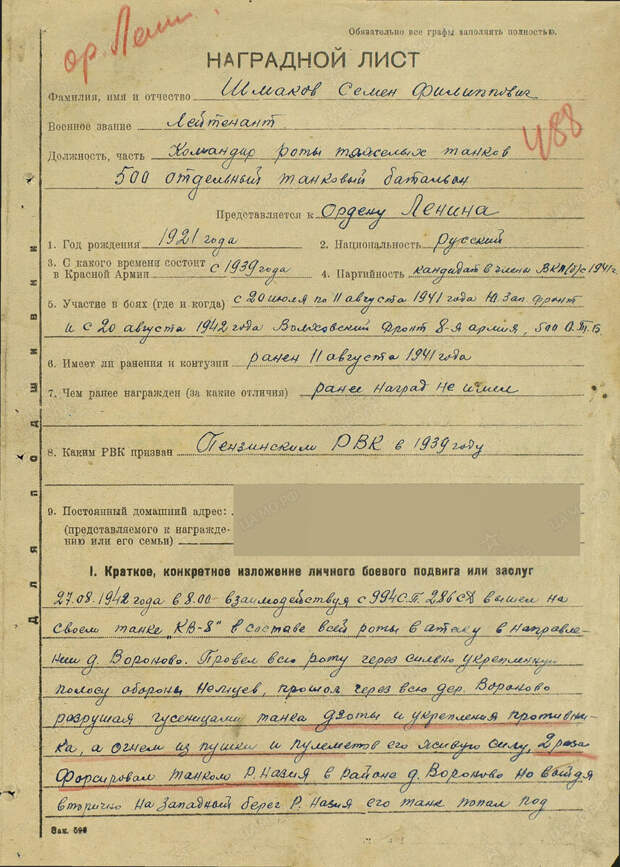 Обязательно все графы заполнять полностью.
ор. Лен
НАГРАДНОЙ ЛИСТ
Фамилия, имя и отчество Шмаков Семен Филиппович
Военное звание Лейтенант
488
Должность, часть Командир роты тяжелых танков
500 отдельный танковый батальон
Представляется к Ордену Ленина
1. Год рождения 1921 года 2. Национальность Русский
3. С какого времени состоит
в Красной Армии с 1939 года 4. Партийность кандидат в члены ВКП(б) с 1941 г.
5. Участие в боях (где и когда) с 20 июля по 11 августа 1941 года Ю. Зап. Фронт
и с 20 августа 1942 года Волховский Фронт 8-я армия, 500 О.Т.Б.
6. Имеет ли ранения и контузии ранен 11 августа 1941 года
7. Чем ранее награжден (за какие отличия) ранее наград не имел
8. Каким РВК призван Пензинском РВК в 1939 году
9. Постоянный домашний адрес:
(представляемого к награжде-
нию или его семьи)
Для подшивки
I. Краткое, конкретное изложение личного боевого подвига или заслуг
27.08.1942 года в 8.00 взаимодействуя с 994 С.П. 286 СД вышел на
своем танке „КВ-8" в составе всей роты в атаку в направле-
нии д. Вороново. Провел всю роту через сильно укрепленную
полосу обороны немцев, прошол через всю дер. Вороново
разрушая гусеницами танка дзоты и укрепления противни-
ка, а огнем из пушки и пулеметов его живую силу, 2 раза
Форсировал танком Р. Назия в районе д. Вороново но выйдя
вторично на западный берег Р. Назия его танк попал под
Зак. 594